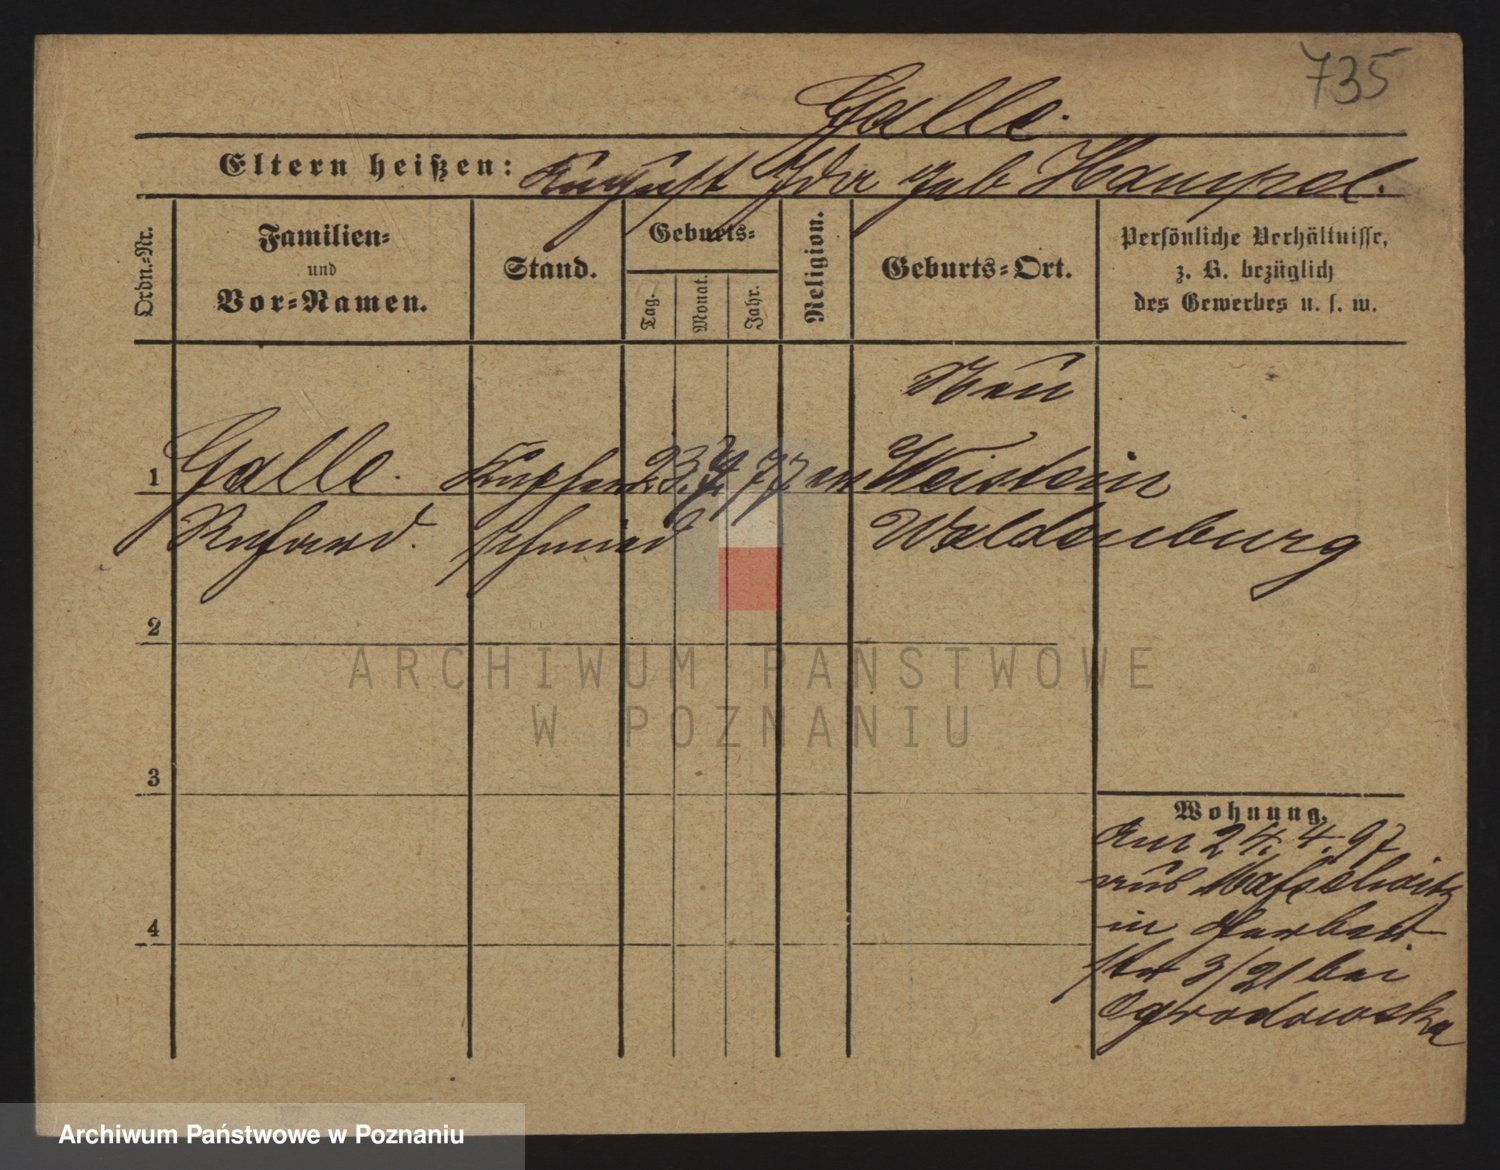 735
Galle.
Eltern heißen: August Ida geb Hampel.
Ordn.-Nr.
Familien-
und
Vor-Namen.
Stand.
Geburts-
Tag.
Monat.
Jahr.
Religion.
Geburts-Ort.
Persönliche Verhältnisse,
z. B. bezüglich
des Gewerbes u. s. w.
Neu
1 Galle. Kupfer 23. 77 ev Weistein
Richard. schmied Waldenburg
2
ARCHIWUM PAŃSTWOWE
W POZNANIU
3
Wohnung.
Am 24. 4. 97
aus
4
in Gerber
str 3/21 bei
Ogrodowska
Archiwum Państwowe w Poznaniu